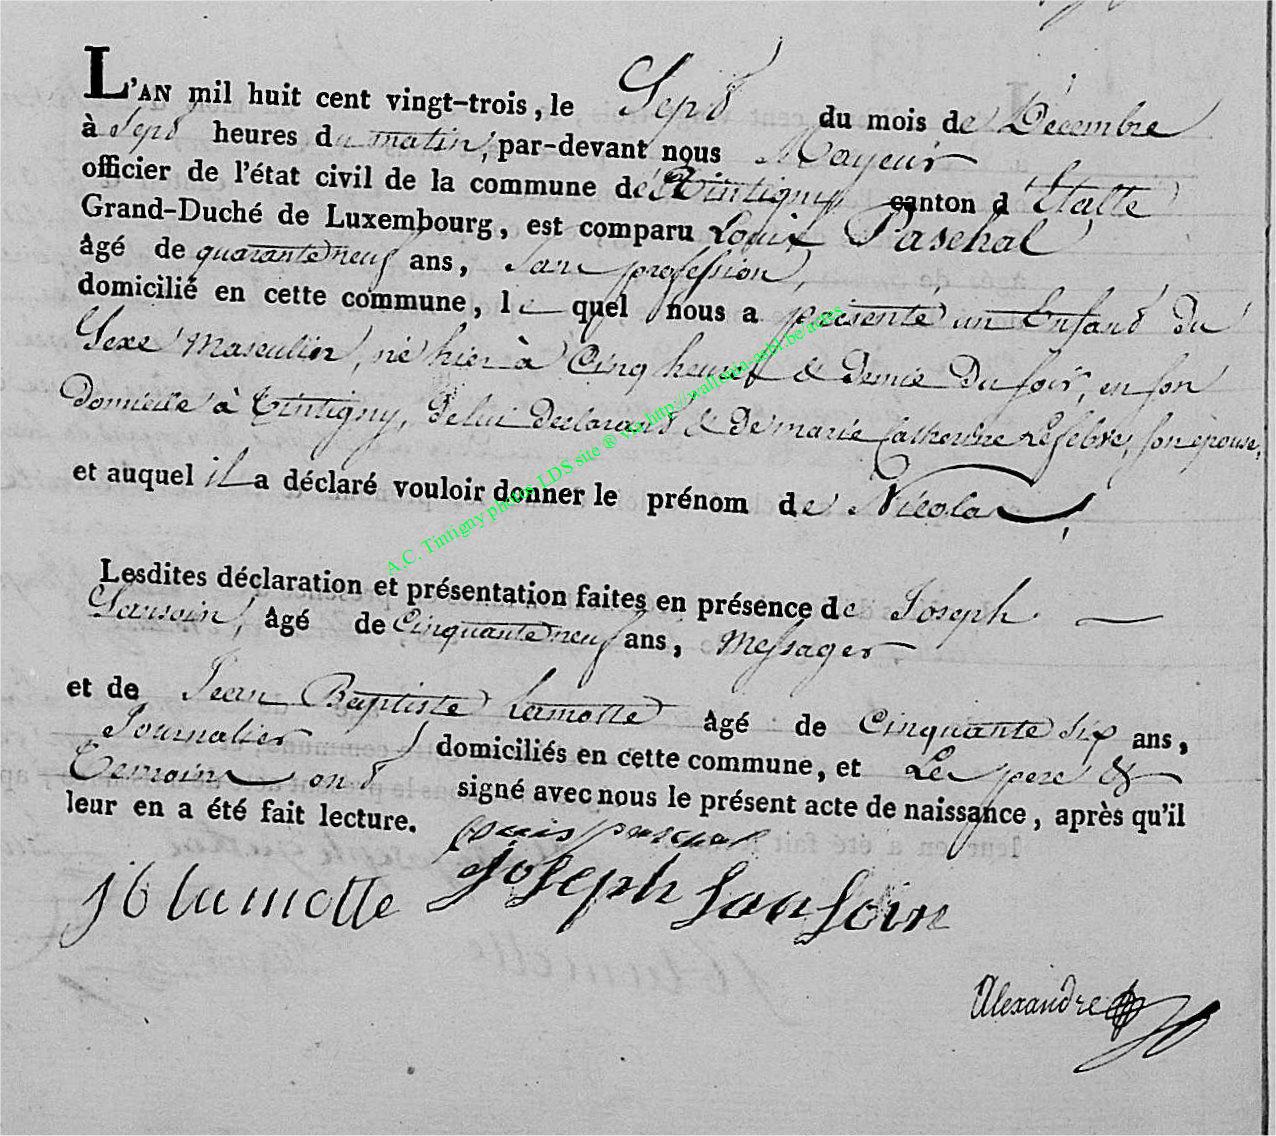 L'AN mil huit cent vingt-trois, le Sept du mois de Décembre
à Sept heures du matin, par-devant nous Mayeur
officier de l'état civil de la commune de Tintigny canton d'Etalle
Grand-Duché de Luxembourg, est comparu Louis Paschal
âgé de quarante neuf ans, sans profession,
domicilié en cette commune, le quel nous a présenté un Enfant du
Sexe Masculin, né hier à Cinq heures & demie du soir, en son
domicile à Tintigny, de lui déclarant & de marie Catherine Lefebvre, son epouse,
et auquel il a déclaré vouloir donner le prénom de Nicolas,
Lesdites déclaration et présentation faites en présence de Joseph
Sansoin, âgé de Cinquante neuf ans, Messager
et de Jean Baptiste Lamotte âgé de Cinquante six ans,
Journalier domiciliés en cette commune, et Le pere &
Temoins ont signé avec nous le présent acte de naissance, après qu'il
leur en a été fait lecture.
Louis paschal
jb lamotte Joseph Sansoin
Alexandre
A.C. Tintigny photos LDS site ® via http://wallonia-asbl.be/actes